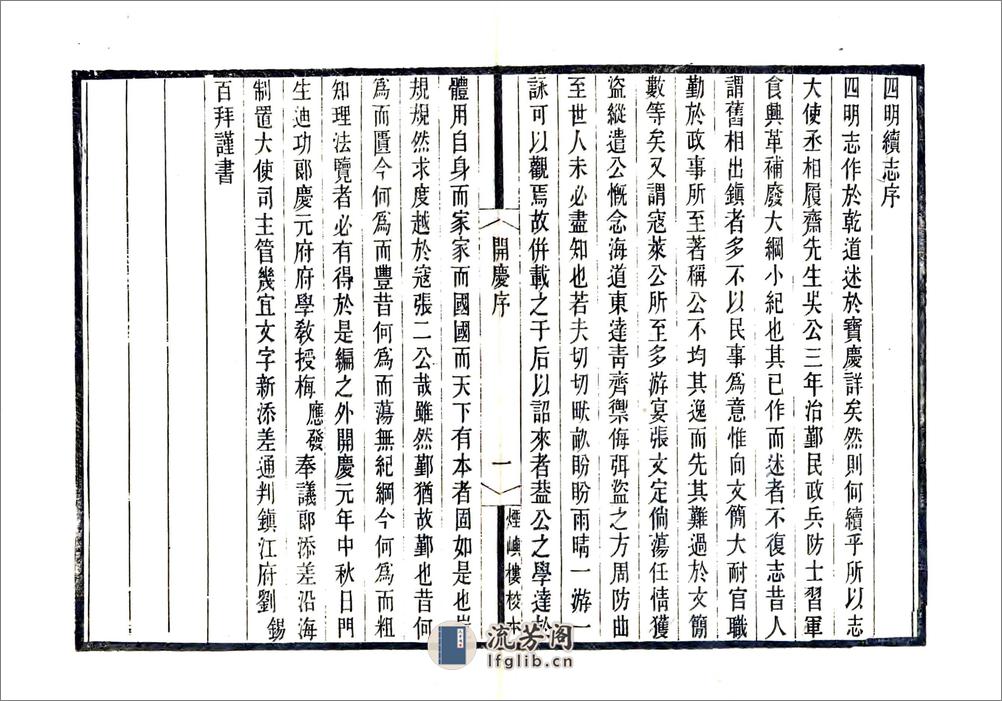 四明續志序
四明志作於乾道述於寶慶詳矣然則何續乎所以志
大使丞相履齋先生吳公三年治鄞民政兵防士習軍
食興革補廢大綱小紀也其已作而述者不復志昔人
謂舊相出鎮者多不以民事爲意惟向文簡大耐官職
勤於政事所至著稱公不均其逸而先其難過於文簡
數等矣又謂寇萊公所至多游宴張文定倘蕩任情獲
盜縱遣公慨念海道東達青齊禦侮弭盜之方周防曲
至世人未必盡知也若夫切切畎畝盼盼雨晴一游一
詠可以觀焉故併載之于后以詔來者葢公之學達於
開慶序
一
煙嶼樓校本
體用自身而家家而國國而天下有本者固如是也豈
規規然求度越於寇張二公哉雖然鄞猶故鄞也昔何
爲而匱今何爲而豐昔何爲而蕩無紀綱今何爲而粗
知理法覽者必有得於是編之外開慶元年中秋日門
生迪功郞慶元府府學敎授梅應發奉議郞添差沿海
制置大使司主管幾宜文字新添差通判鎮江府劉錫
百拜謹書
流芳阁
lfglib.cn